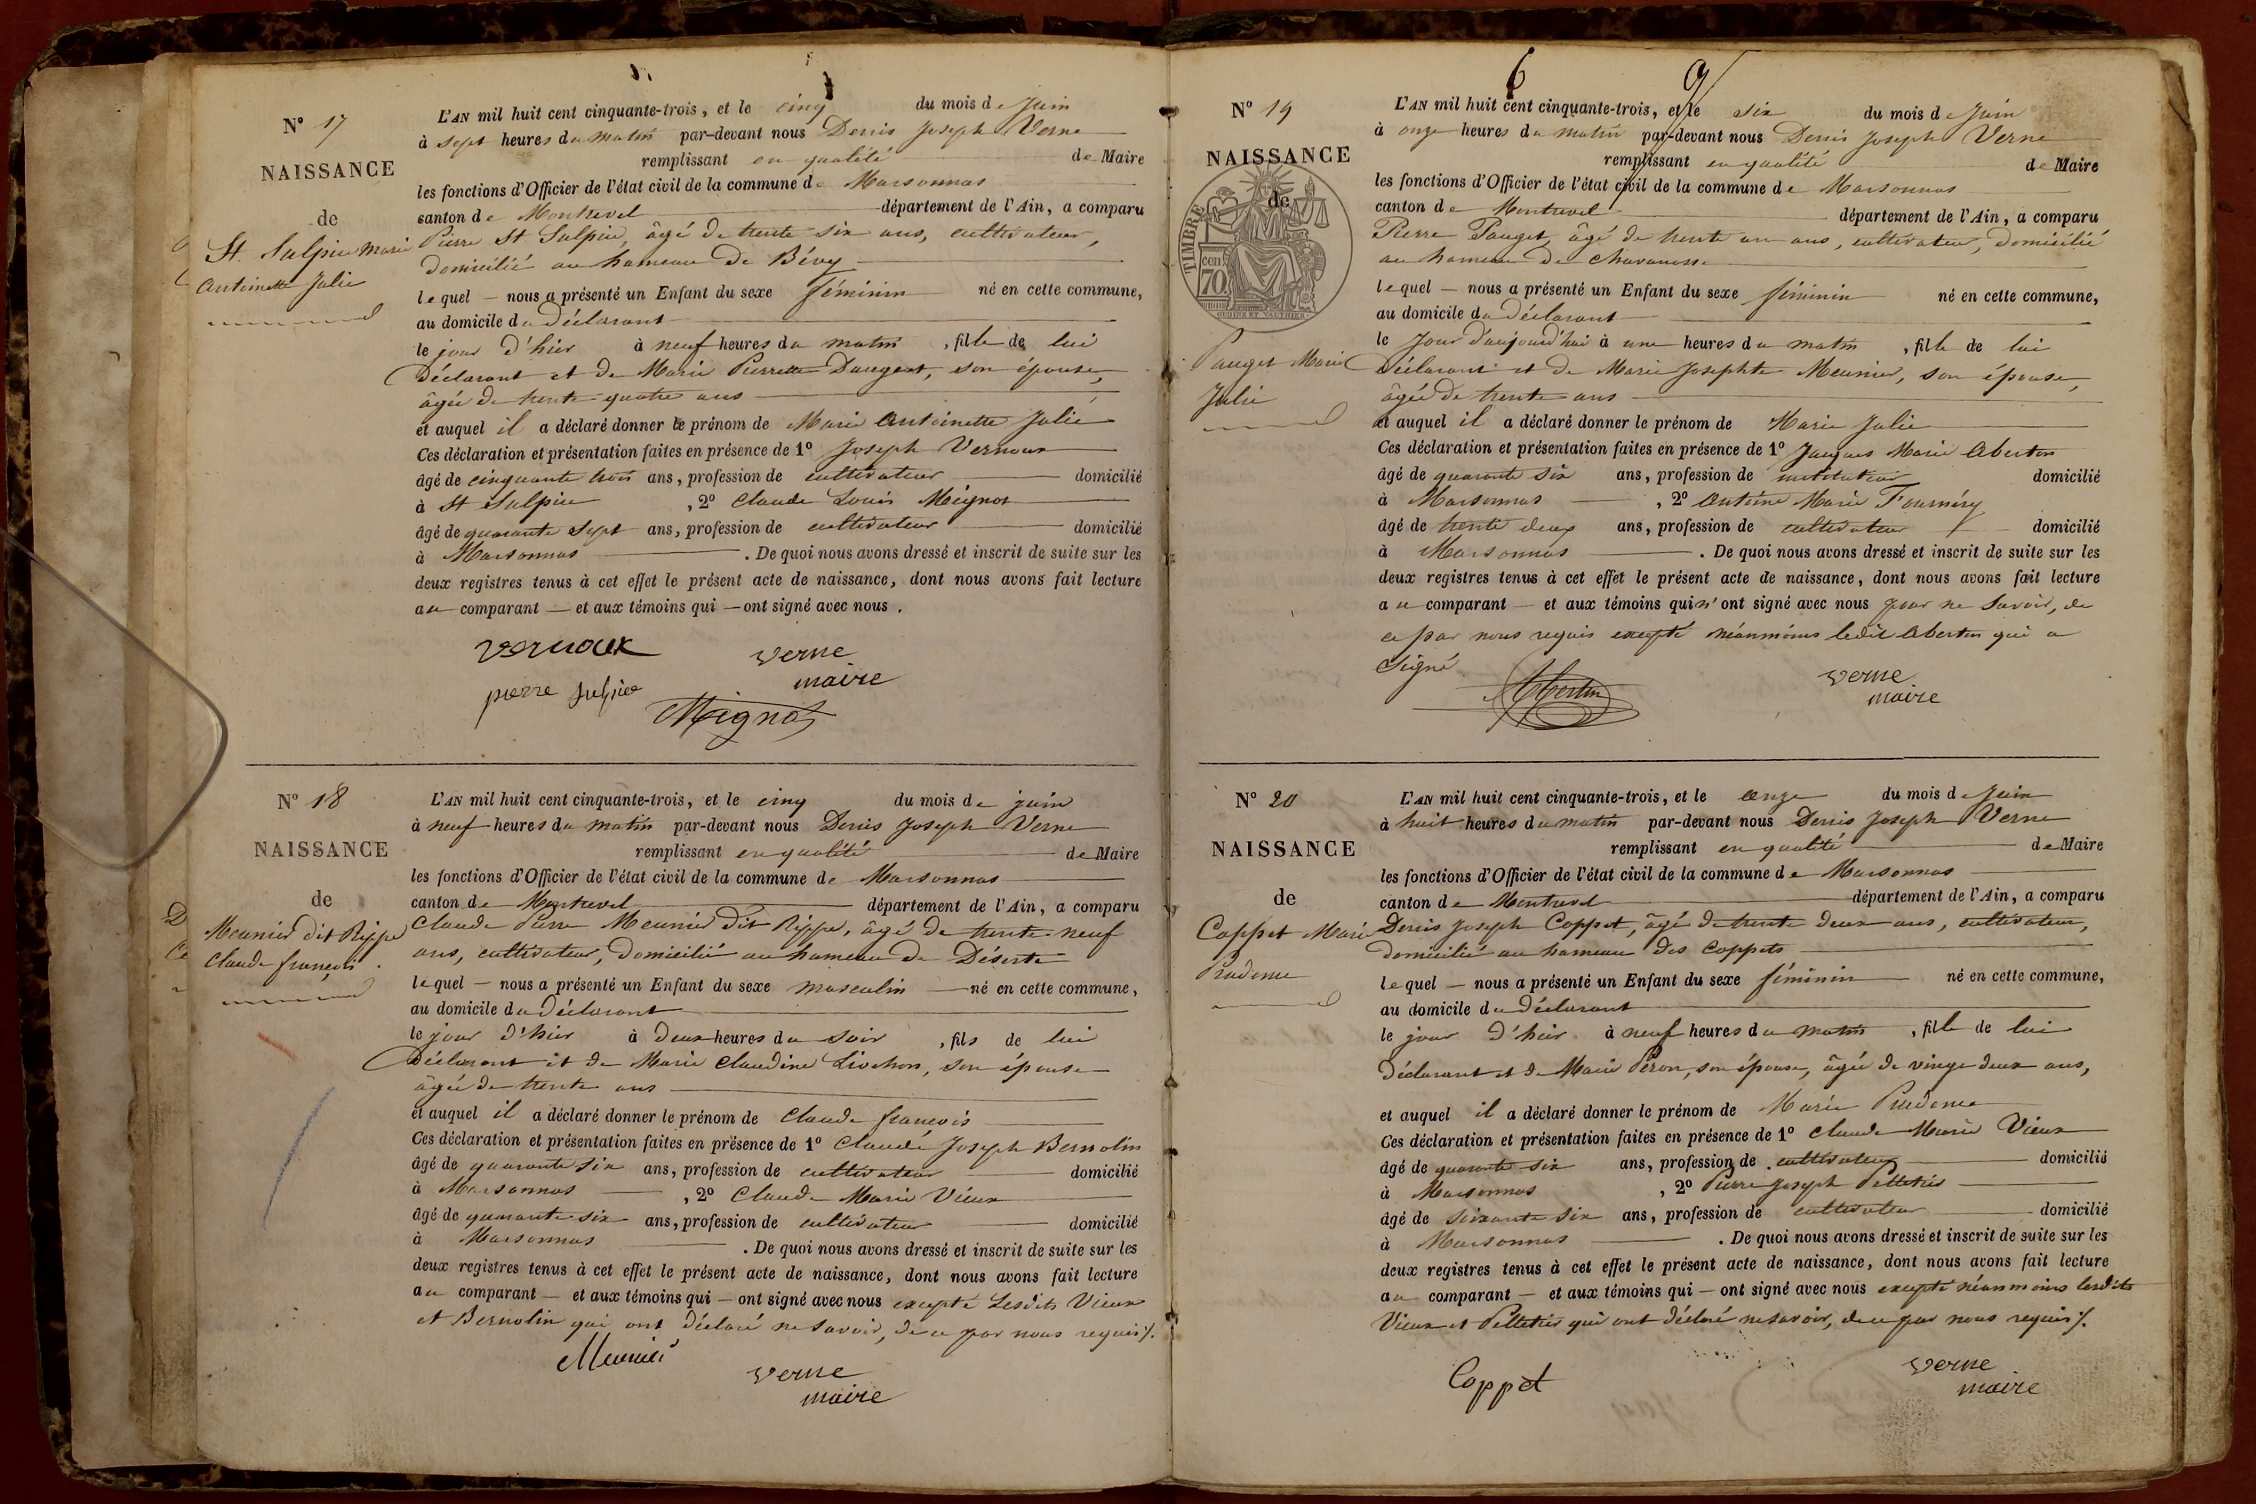 N° 17
NAISSANCE
de
St. Sulpice Marie
Antoinette Julie
L'AN mil huit cent cinquante-trois, et le cinq du mois de Juin
à sept heures du matin par-devant nous Denis Joseph Verne
remplissant en qualité de Maire
les fonctions d'Officier de l'état civil de la commune de Marsonnas
canton de Montrevel département de l'Ain, a comparu
Pierre St Sulpice, âgé de trente six ans, cultivateur,
domicilié au hameau de Bévy
lequel — nous a présenté un Enfant du sexe féminin né en cette commune,
au domicile du Déclarant
le jour d'hier à neuf heures du matin, fille de lui
Déclarant et de Marie Pierrette Daugent, son épouse,
âgée de trente quatre ans
et auquel il a déclaré donner le prénom de Marie Antoinette Julie
Ces déclaration et présentation faites en présence de 1° Joseph Vernoux
âgé de cinquante trois ans, profession de cultivateur domicilié
à St Sulpice, 2° Claude Louis Meignot
âgé de quarante sept ans, profession de cultivateur domicilié
à Marsonnas. De quoi nous avons dressé et inscrit de suite sur les
deux registres tenus à cet effet le présent acte de naissance, dont nous avons fait lecture
au comparant — et aux témoins qui — ont signé avec nous.
vernoux verne
maire
pierre sulpice
Mignot
N° 18
NAISSANCE
de
Meunier dit Rippe
Claude françois
L'AN mil huit cent cinquante-trois, et le cinq du mois de juin
à neuf heures du matin par-devant nous Denis Joseph Verne
remplissant en qualité de Maire
les fonctions d'Officier de l'état civil de la commune de Marsonnas
canton de Montrevel département de l'Ain, a comparu
Claude Pierre Meunier dit Rippe, âgé de trente-neuf
ans, cultivateur, domicilié au hameau de Déserte
lequel — nous a présenté un Enfant du sexe masculin — né en cette commune,
au domicile du Déclarant
le jour d'hier à deux heures du soir, fils de lui
Déclarant et de Marie Claudine Livchon, son épouse
âgée de trente ans
et auquel il a déclaré donner le prénom de Claude françois
Ces déclaration et présentation faites en présence de 1° Claude Joseph Bernolin
âgé de quarante six ans, profession de cultivateur domicilié
à Marsonnas, 2° Claude Marie Vieux
âgé de quarante-six ans, profession de cultivateur domicilié
à Marsonnas. De quoi nous avons dressé et inscrit de suite sur les
deux registres tenus à cet effet le présent acte de naissance, dont nous avons fait lecture
au comparant — et aux témoins qui — ont signé avec nous excepté Lesdits Vieux
et Bernolin qui ont déclaré ne savoir, de ce par nous requis ./.
Meunier
verne
maire
6 9
N° 19
NAISSANCE
de
TIMBRE
70 cen
Pauget Marie
Julie
L'AN mil huit cent cinquante-trois, et le six du mois de Juin
à onze heures du matin par-devant nous Denis Joseph Verne
remplissant en qualité de Maire
les fonctions d'Officier de l'état civil de la commune de Marsonnas
canton de Montrevel département de l'Ain, a comparu
Pierre Pauget, âgé de trente un ans, cultivateur, domicilié
au hameau de Chavannosse
lequel — nous a présenté un Enfant du sexe féminin né en cette commune,
au domicile du Déclarant
le Jour d'aujourd'hui à une heures du matin, fille de lui
Déclarant et de Marie Josephte Meunier, son épouse,
âgée de trente ans
et auquel il a déclaré donner le prénom de Marie Julie
Ces déclaration et présentation faites en présence de 1° Jacques Marie Alberton
âgé de quarante six ans, profession de instituteur domicilié
à Marsonnas, 2° Antoine Marie Fournéry
âgé de trente deux ans, profession de cultivateur domicilié
à Marsonnas. De quoi nous avons dressé et inscrit de suite sur les
deux registres tenus à cet effet le présent acte de naissance, dont nous avons fait lecture
au comparant — et aux témoins qui n'ont signé avec nous pour ne savoir, de
ce par nous requis excepté néanmoins ledit Alberton qui a
signé
verne
maire
N° 20
NAISSANCE
de
Coppet Marie
Prudence
L'AN mil huit cent cinquante-trois, et le onze du mois de Juin
à huit heures du matin par-devant nous Denis Joseph Verne
remplissant en qualité de Maire
les fonctions d'Officier de l'état civil de la commune de Marsonnas
canton de Montrevel département de l'Ain, a comparu
Denis Joseph Coppet, âgé de trente deux ans, cultivateur,
domicilié au hameau des Coppets
lequel — nous a présenté un Enfant du sexe féminin né en cette commune,
au domicile du Déclarant
le jour d'hier à neuf heures du matin, fille de lui
Déclarant et de Marie Péron, son épouse, âgée de vingt deux ans,
et auquel il a déclaré donner le prénom de Marie Prudence
Ces déclaration et présentation faites en présence de 1° Claude Marie Vieux
âgé de quarante-six ans, profession de cultivateur domicilié
à Marsonnas, 2° Pierre Joseph Pelletier
âgé de soixante six ans, profession de cultivateur domicilié
à Marsonnas. De quoi nous avons dressé et inscrit de suite sur les
deux registres tenus à cet effet le présent acte de naissance, dont nous avons fait lecture
au comparant — et aux témoins qui — ont signé avec nous excepté néanmoins lesdits
Vieux et Pelletier qui ont déclaré ne savoir, de ce par nous requis ./.
Coppet
verne
maire